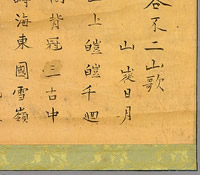 谷不二山歌
山炭日月
上皚皚千迴
背冠三古中
海東國雪嶺